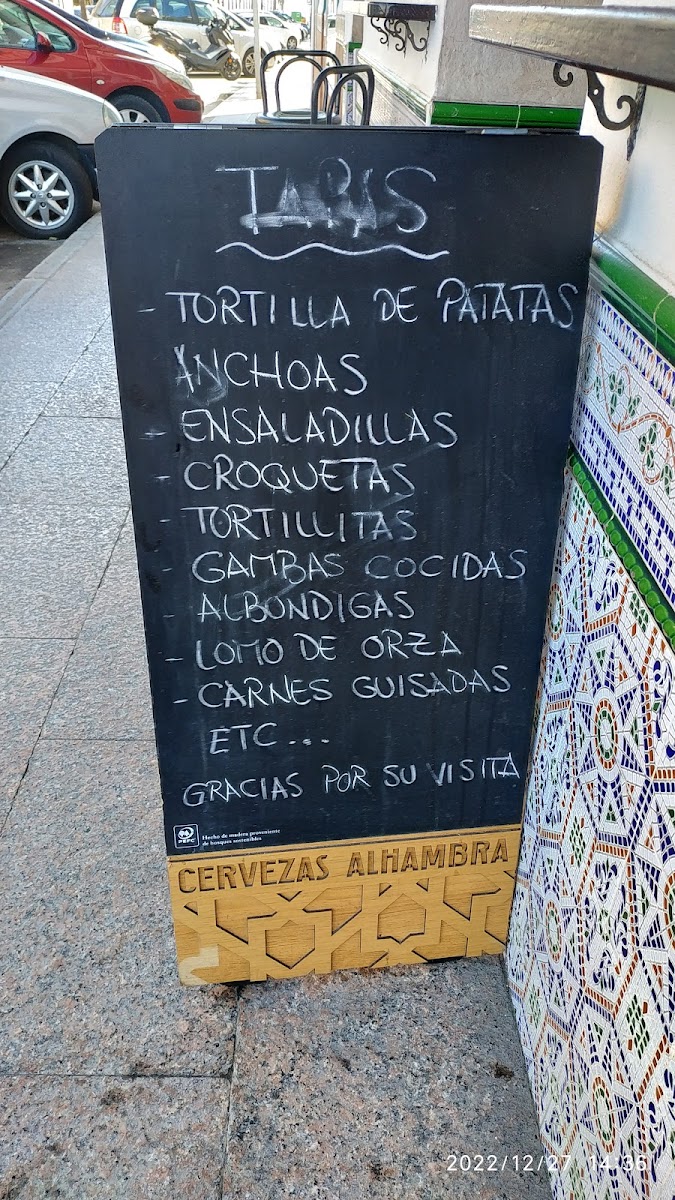 TAPAS
- TORTILLA DE PATATAS
ANCHOAS
- ENSALADILLAS
- CROQUETAS
- TORTILLITAS
- GAMBAS COCIDAS
- ALBONDIGAS
- LOMO DE ORZA
- CARNES GUISADAS
ETC...
GRACIAS POR SU VISITA
PEFC
Hecho de madera proveniente
de bosques sostenibles
CERVEZAS ALHAMBRA
2022/12/27 14:36